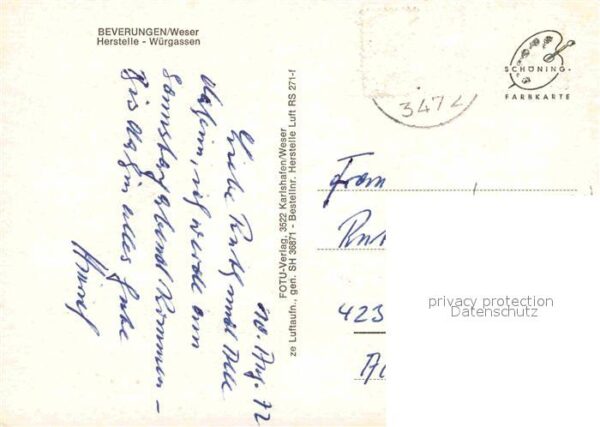 BEVERUNGEN/Weser
Herstelle - Würgassen
10. Aug. 72
Liebe Ruth und
werde am
Samstag abend kommen -
Bis dahin alles Gute
FOTU-Verlag, 3522 Karlshafen/Weser
ze Luftaufn., gen. SH 36871 - Bestellnr. Herstelle Luft RS 271-f
SCHÖNING-
FARBKARTE
3472
Frau
423
privacy protection
Datenschutz